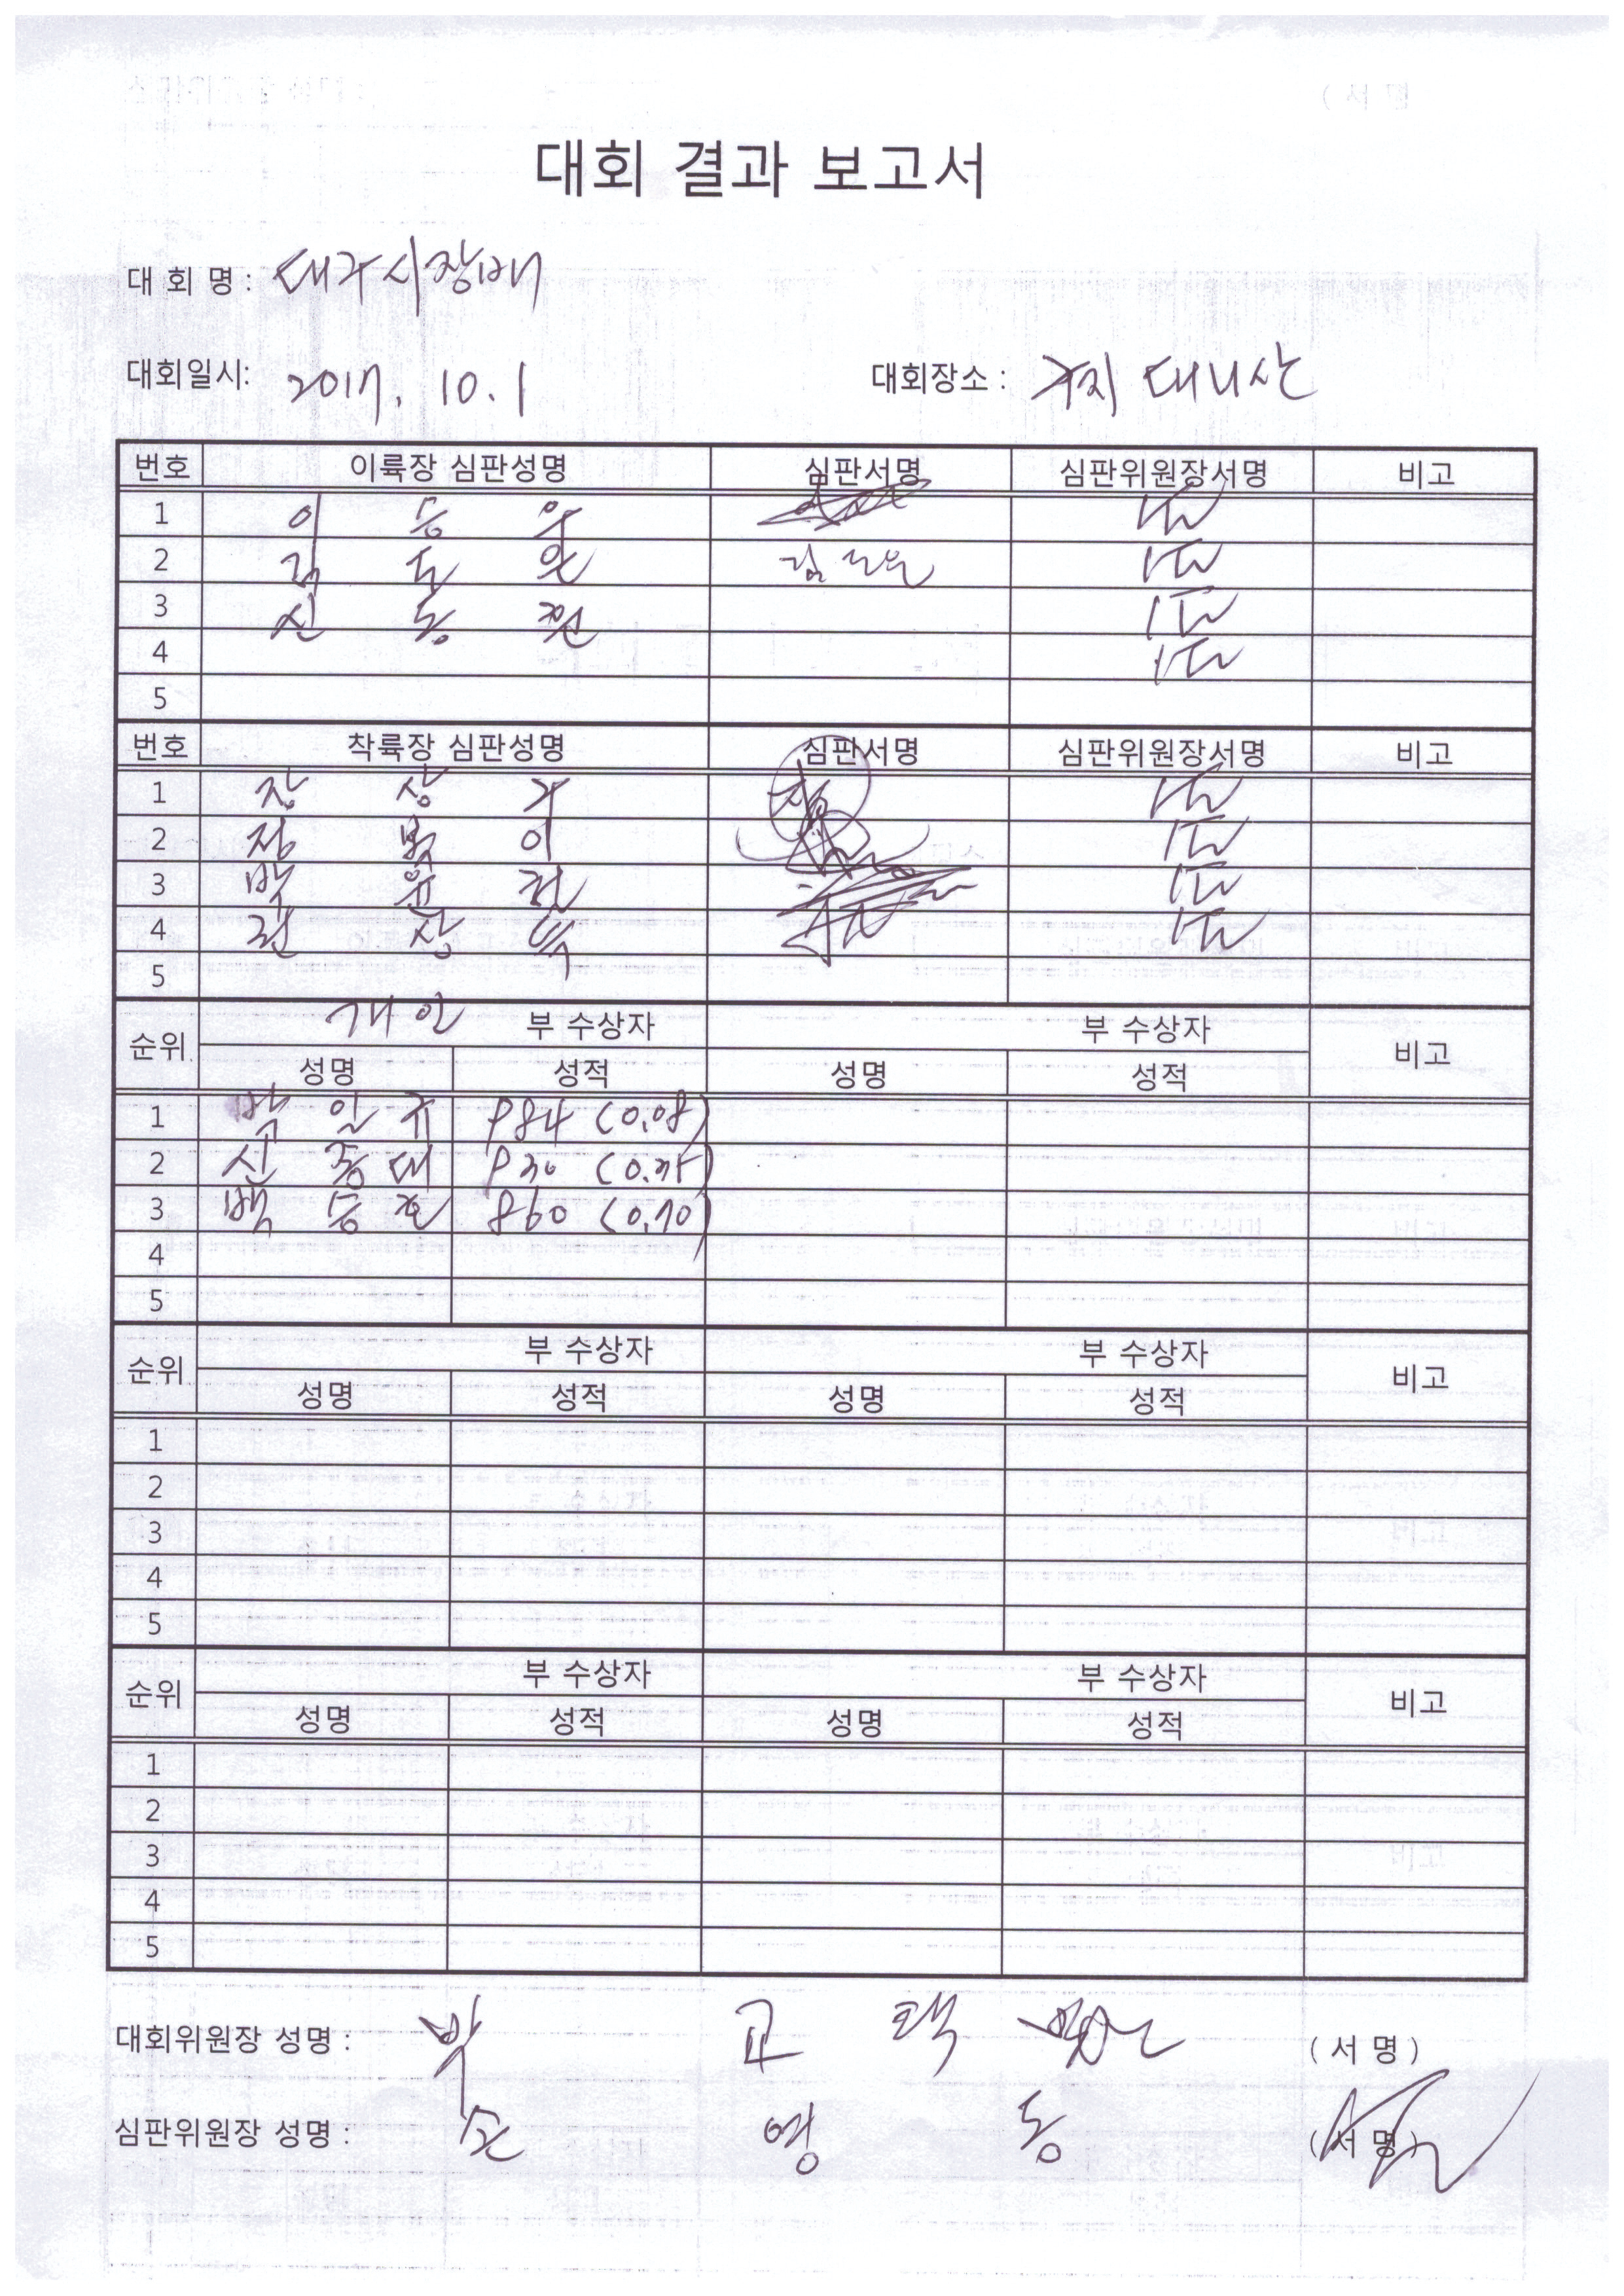 대회 결과 보고서
대 회 명 : 대구시장배
대회일시: 2017. 10. 1 대회장소 : 구지 대니산
번호 이륙장 심판성명 심판서명 심판위원장서명 비고
1 이 승 우
2 김 도 운 김도운
3 신 동 원
4
5
번호 착륙장 심판성명 심판서명 심판위원장서명 비고
1 장 상 구
2 정 복 이
3 박 윤 권
4 권 상 득
5
순위 개인 부 수상자 부 수상자 비고
성명 성적 성명 성적
1 박 일 규 984 (0.08)
2 신 종 대 930 (0.35)
3 백 승 호 860 (0.70)
4
5
순위 부 수상자 부 수상자 비고
성명 성적 성명 성적
1
2
3
4
5
순위 부 수상자 부 수상자 비고
성명 성적 성명 성적
1
2
3
4
5
대회위원장 성명 : 박 교 택 (서 명)
심판위원장 성명 : 손 영 동 (서 명)